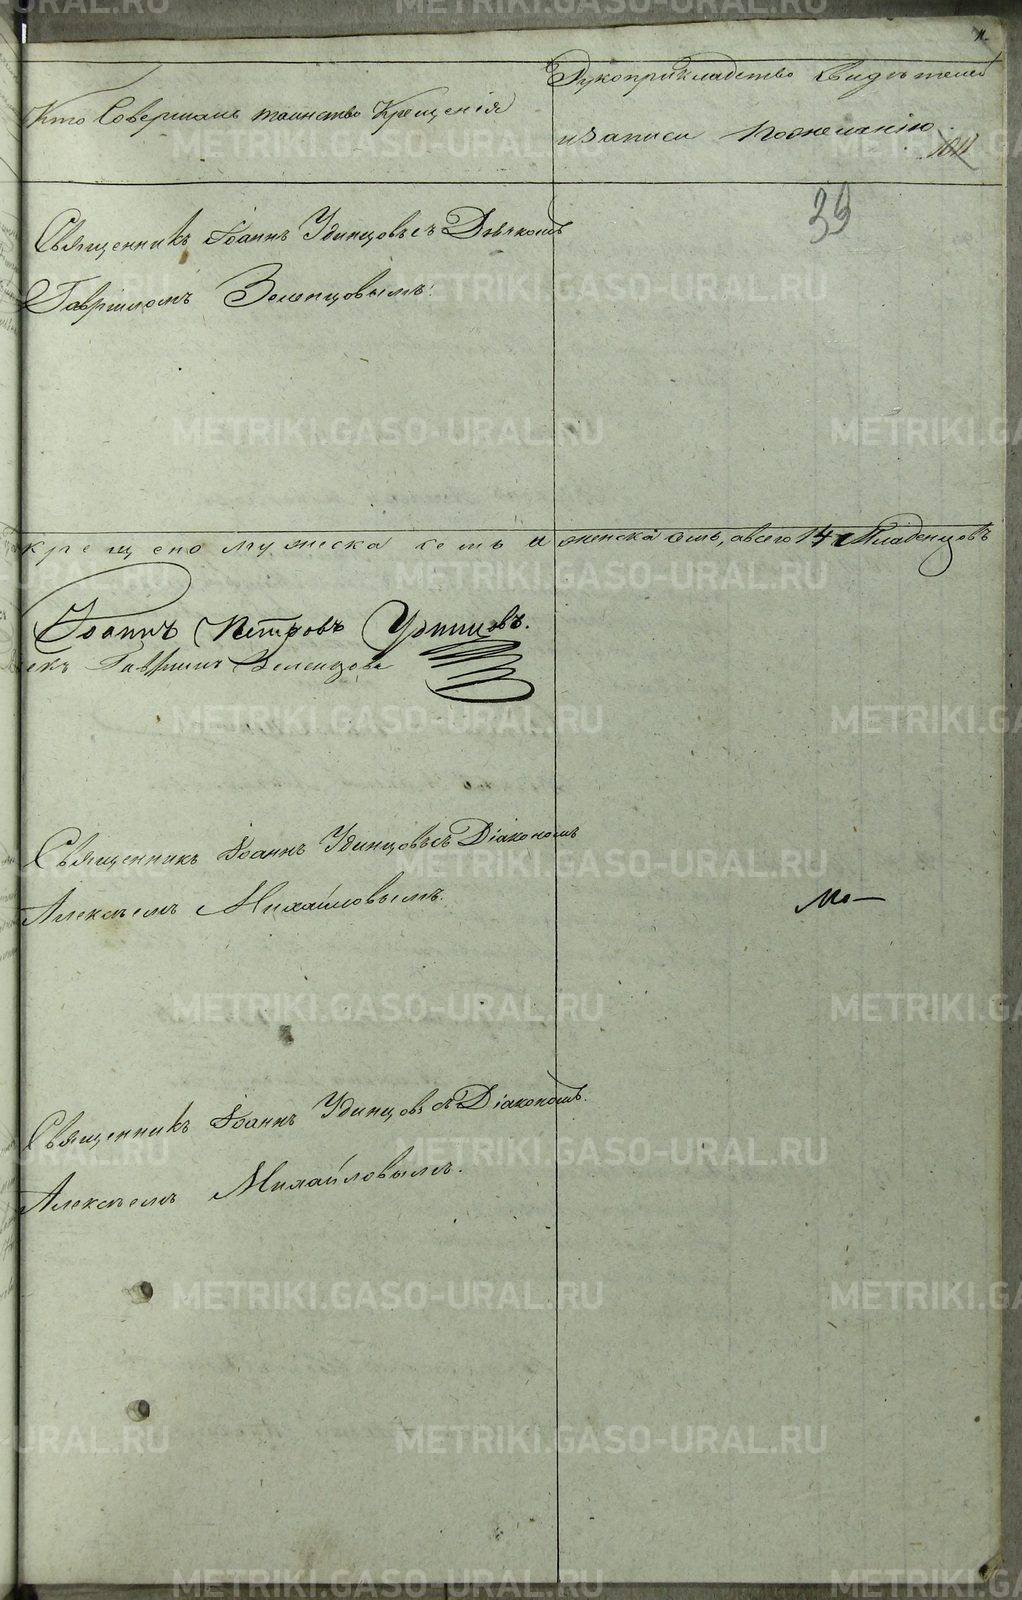 Рукоприкладство Свидѣтелей
Кто Совершалъ таинство Крещенія
записи по желанію
39
Священникъ Іоаннъ Удинцовъ съ Дьячкомъ
Гавріиломъ Зеленцовымъ.
крещено мужеска семь и женска семь, а всего 14 Младенцовъ
Іоаннъ Петровъ Удинцовъ.
Гавріилъ Зеленцовъ
Священникъ Іоаннъ Удинцовъ съ Діакономъ
Алексѣемъ Михайловымъ.
Священникъ Іоаннъ Удинцовъ съ Діакономъ.
Алексѣемъ Михайловымъ.
METRIKI.GASO-URAL.RU